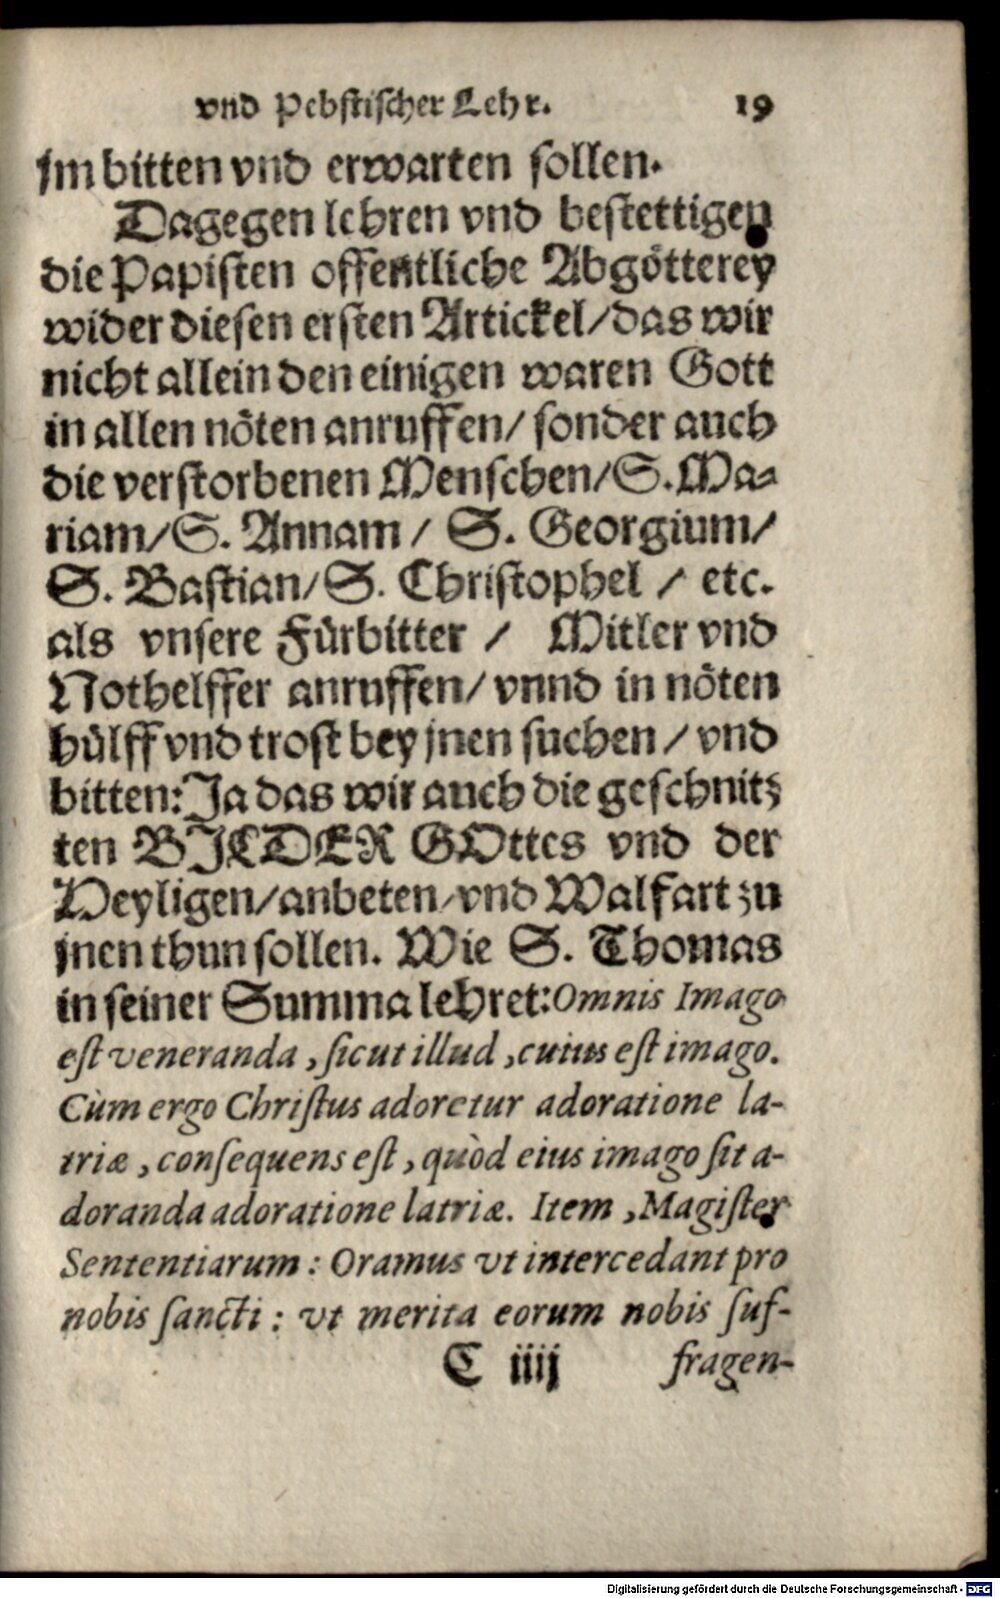 vnd Pebstischer Lehr. 19
jm bitten vnd erwarten sollen.
Dagegen lehren vnd bestettigen
die Papisten offentliche Abgötterey
wider diesen ersten Artickel/das wir
nicht allein den einigen waren Gott
in allen nöten anruffen/ sonder auch
die verstorbenen Menschen/S. Ma-
riam/S. Annam / S. Georgium/
S. Bastian/S. Christophel / etc.
als vnsere Fürbitter / Mitler vnd
Nothelffer anruffen/ vnnd in nöten
hülff vnd trost bey jnen suchen / vnd
bitten: Ja das wir auch die geschnitz
ten BILDER GOttes vnd der
Heyligen/anbeten/vnd Walfart zu
jnen thun sollen. Wie S. Thomas
in seiner Summa lehret: Omnis Imago
est veneranda, sicut illud, cuius est imago.
Cùm ergo Christus adoretur adoratione la-
triæ, consequens est, quòd eius imago sit a-
doranda adoratione latriæ. Item, Magister
Sententiarum: Oramus vt intercedant pro
nobis sancti: vt merita eorum nobis suf-
C iiij fragen-
Digitalisierung gefördert durch die Deutsche Forschungsgemeinschaft - DFG